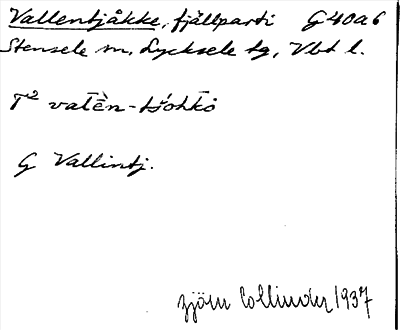 Vallentjåkke, fjällparti G40a6
Stensele sn, Lycksele tg, Vbt l.
T² vatēn-tjohkō
G Vallintj.
Björn Collinder 1937